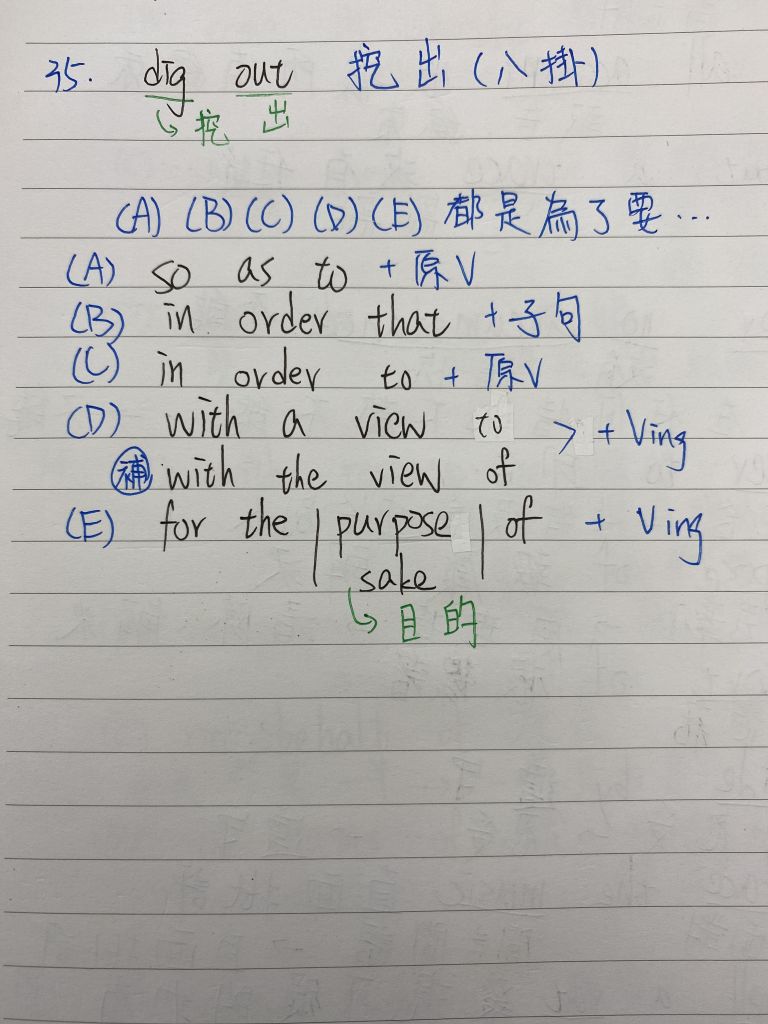 35. dig out 挖出(八掛)
↳挖 出
(A) (B) (C) (D) (E) 都是為了要...
(A) so as to + 原V
(B) in order that + 子句
(C) in order to + 原V
(D) with a view to > + Ving
補 with the view of
(E) for the | purpose | of + Ving
sake
↳目的